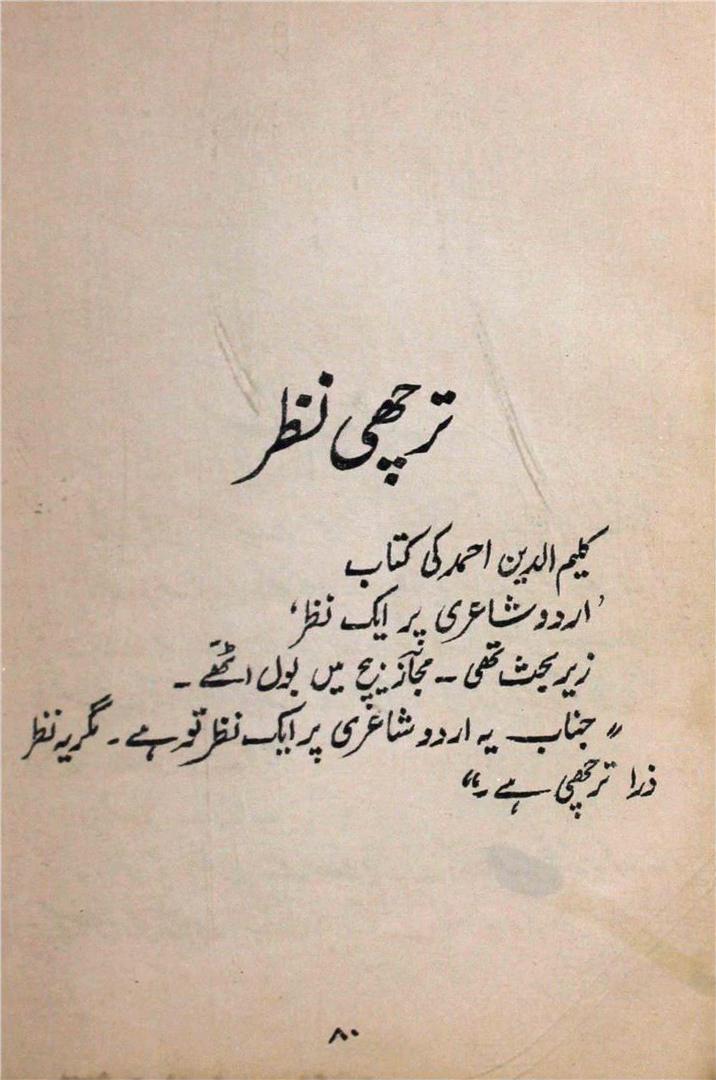 ترچھی نظر
کلیم الدین احمد کی کتاب
'اردو شاعری پر ایک نظر'
زیر بحث تھی۔ مجاز بیچ میں بول اٹھے۔
"جناب یہ اردو شاعری پر ایک نظر تو ہے۔ مگر یہ نظر
ذرا ترچھی ہے۔"
۸۰